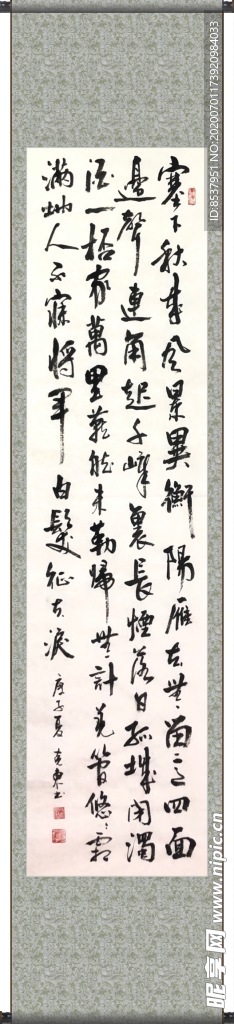 塞下秋来風景異衡陽雁去無留意四面
邊聲連角起千嶂裏長煙落日孤城閉濁
酒一杯家萬里燕然未勒歸無計羌管悠悠霜
滿地人不寐將軍白髮征夫淚
庚子夏
ID:8537951 NO:20200701173920984033
昵享网 www.nipic.cn